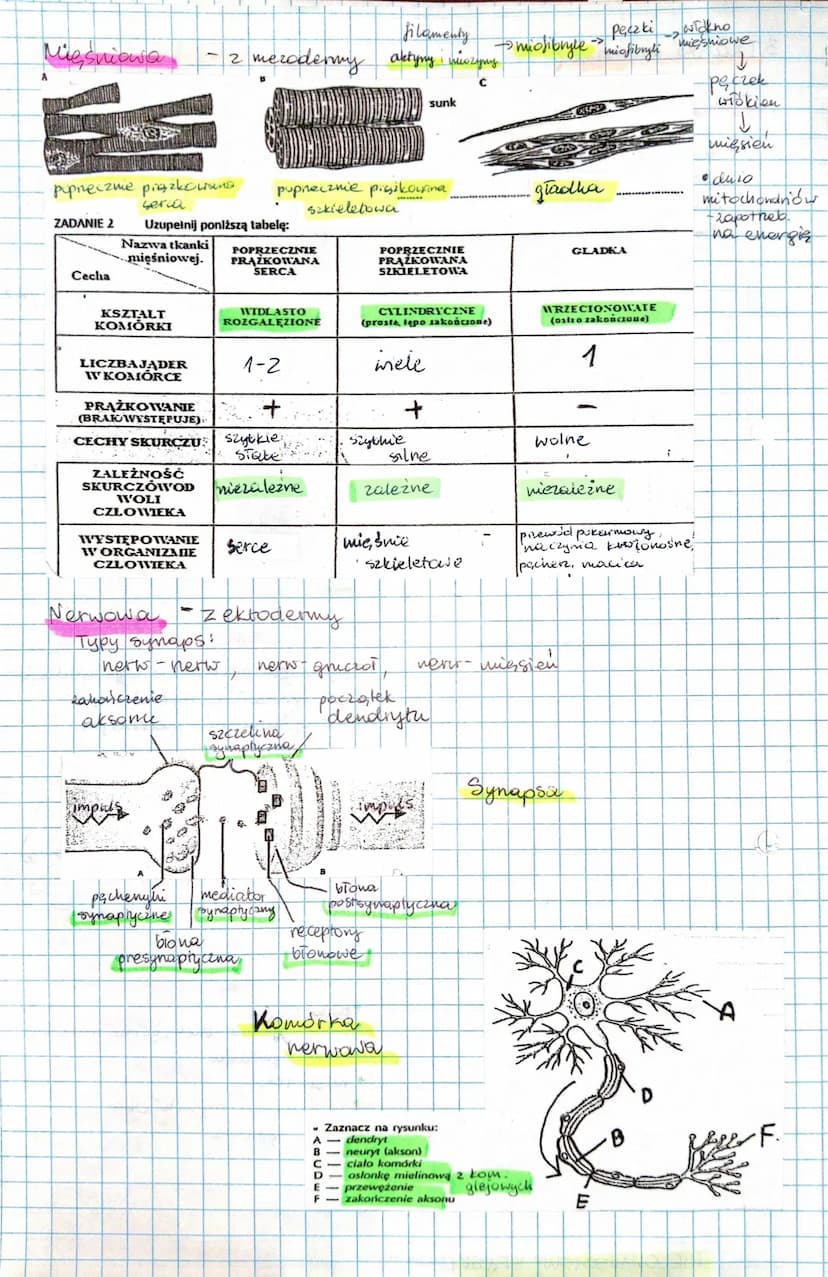 Mięśniowa - z mezodermy
filamenty
aktyny i miozyny → miofibryle → pęczki miofibryli → włókno mięśniowe
↓
pęczek
włókien
↓
mięsień
• dużo
mitochondriów
- zapotrzeb.
na energię
A
B
C
sunk
poprzecznie prążkowana
serca
poprzecznie prążkowana
szkieletowa
gładka
ZADANIE 2 Uzupełnij poniższą tabelę:
Nazwa tkanki mięśniowej.
Cecha
POPRZECZNIE PRĄŻKOWANA SERCA
POPRZECZNIE PRĄŻKOWANA SZKIELETOWA
GŁADKA
KSZTAŁT KOMÓRKI
WIDLASTO ROZGAŁĘZIONE
CYLINDRYCZNE (proste, tępo zakończone)
WRZECIONOWATE (ostro zakończone)
LICZBA JĄDER W KOMÓRCE
1-2
wiele
1
PRĄŻKOWANIE (BRAK/WYSTĘPUJE)
+
+
-
CECHY SKURCZU:
szybkie, słabe
szybkie silne
wolne
ZALEŻNOŚĆ SKURCZÓW OD WOLI CZŁOWIEKA
niezależne
zależne
niezależne
WYSTĘPOWANIE W ORGANIZMIE CZŁOWIEKA
serce
mięśnie szkieletowe
przewód pokarmowy, naczynia krwionośne, pęcherz, macica
Nerwowa - z ektodermy
Typy synaps:
nerw - nerw, nerw - gruczoł, nerw - mięsień
zakończenie
aksonu
początek
dendrytu
szczelina
synaptyczna
impuls
impuls
Synapsa
A
B
pęcherzyki
synaptyczne
mediator
synaptyczny
błona
postsynaptyczna
błona
presynaptyczna
receptory
błonowe
Komórka
nerwowa
C
A
D
B
F.
E
• Zaznacz na rysunku:
A — dendryt
B — neuryt (akson)
C — ciało komórki
D — osłonkę mielinową z kom. glejowych
E — przewężenie
F — zakończenie aksonu